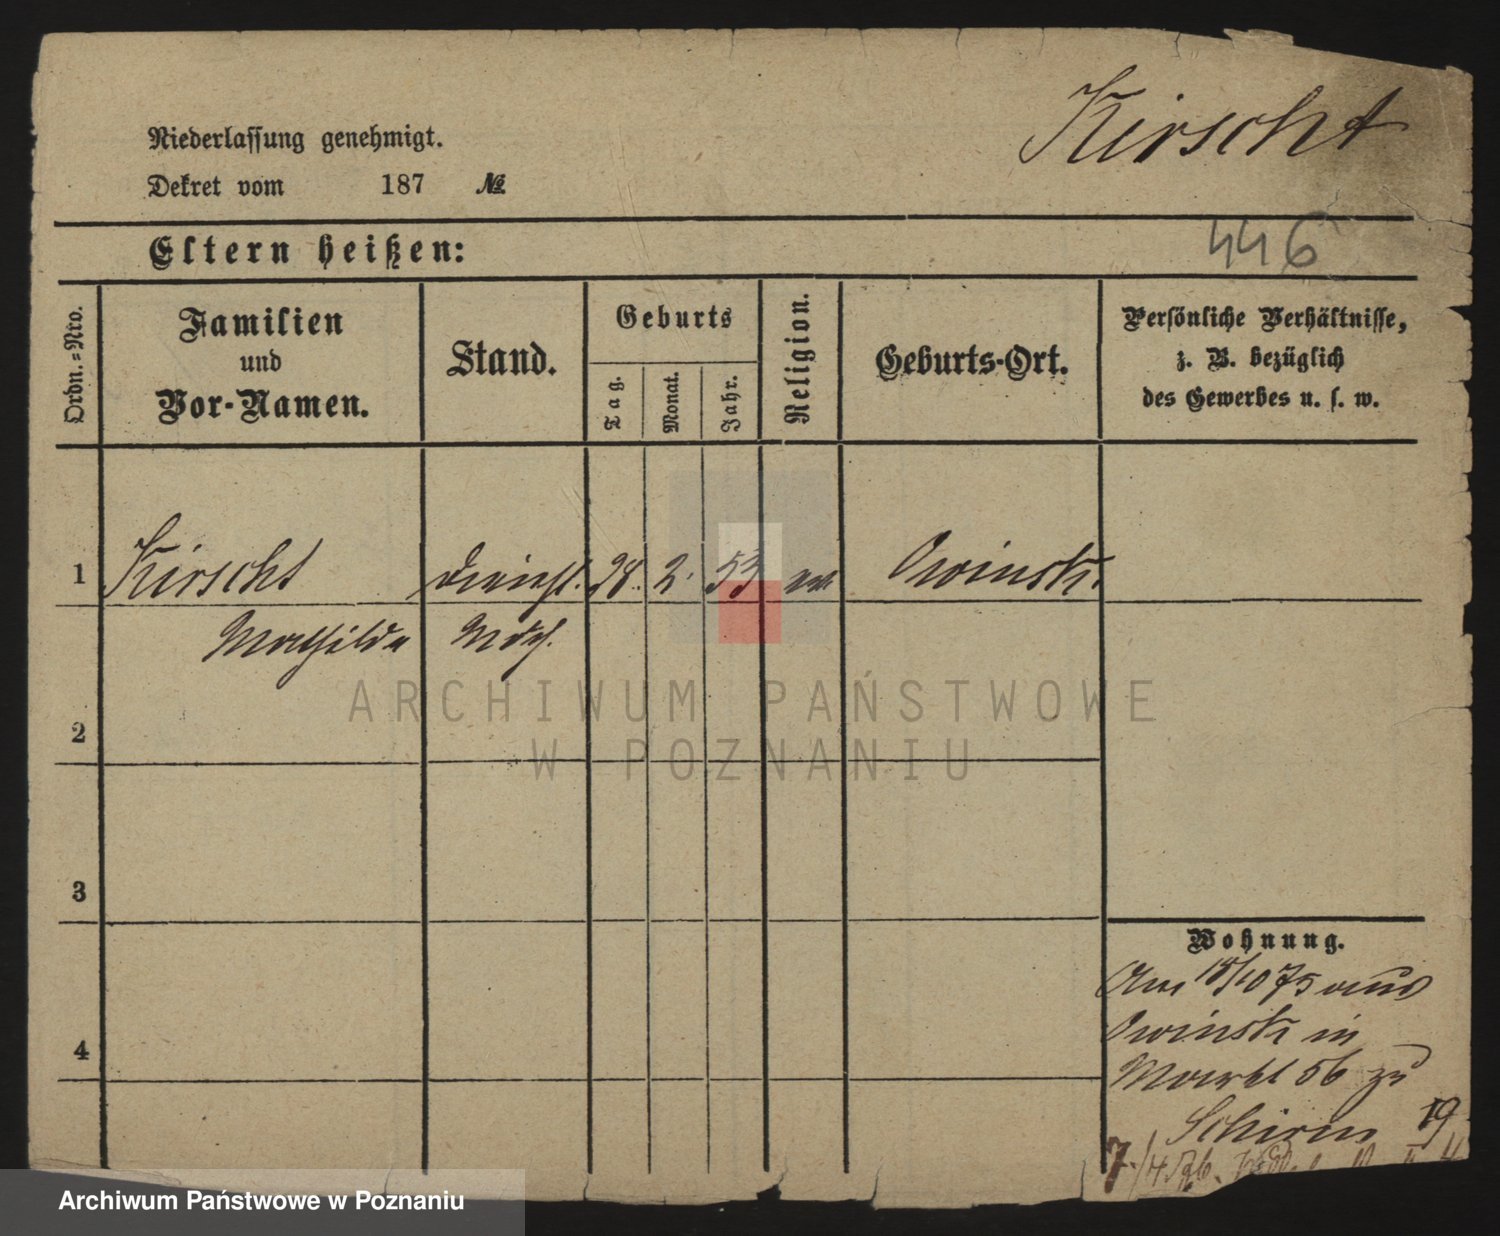 Kirscht
Niederlassung genehmigt.
Dekret vom 187 №
446
Eltern heißen:
Ordn.-Nro.
Familien
und
Vor-Namen.
Stand.
Geburts
Tag.
Monat.
Jahr.
Religion.
Geburts-Ort.
Persönliche Verhältnisse,
z. B. bezüglich
des Gewerbes u. s. w.
1 Kirscht Dienst. 28. 2. 53 Owinsk.
Mathilde Mdch.
2
3
4
Wohnung.
Am 18/10 75 aus
Owinsk in
Markt 56 zu
Schirm 19
7./4
ARCHIWUM PAŃSTWOWE
W POZNANIU
Archiwum Państwowe w Poznaniu